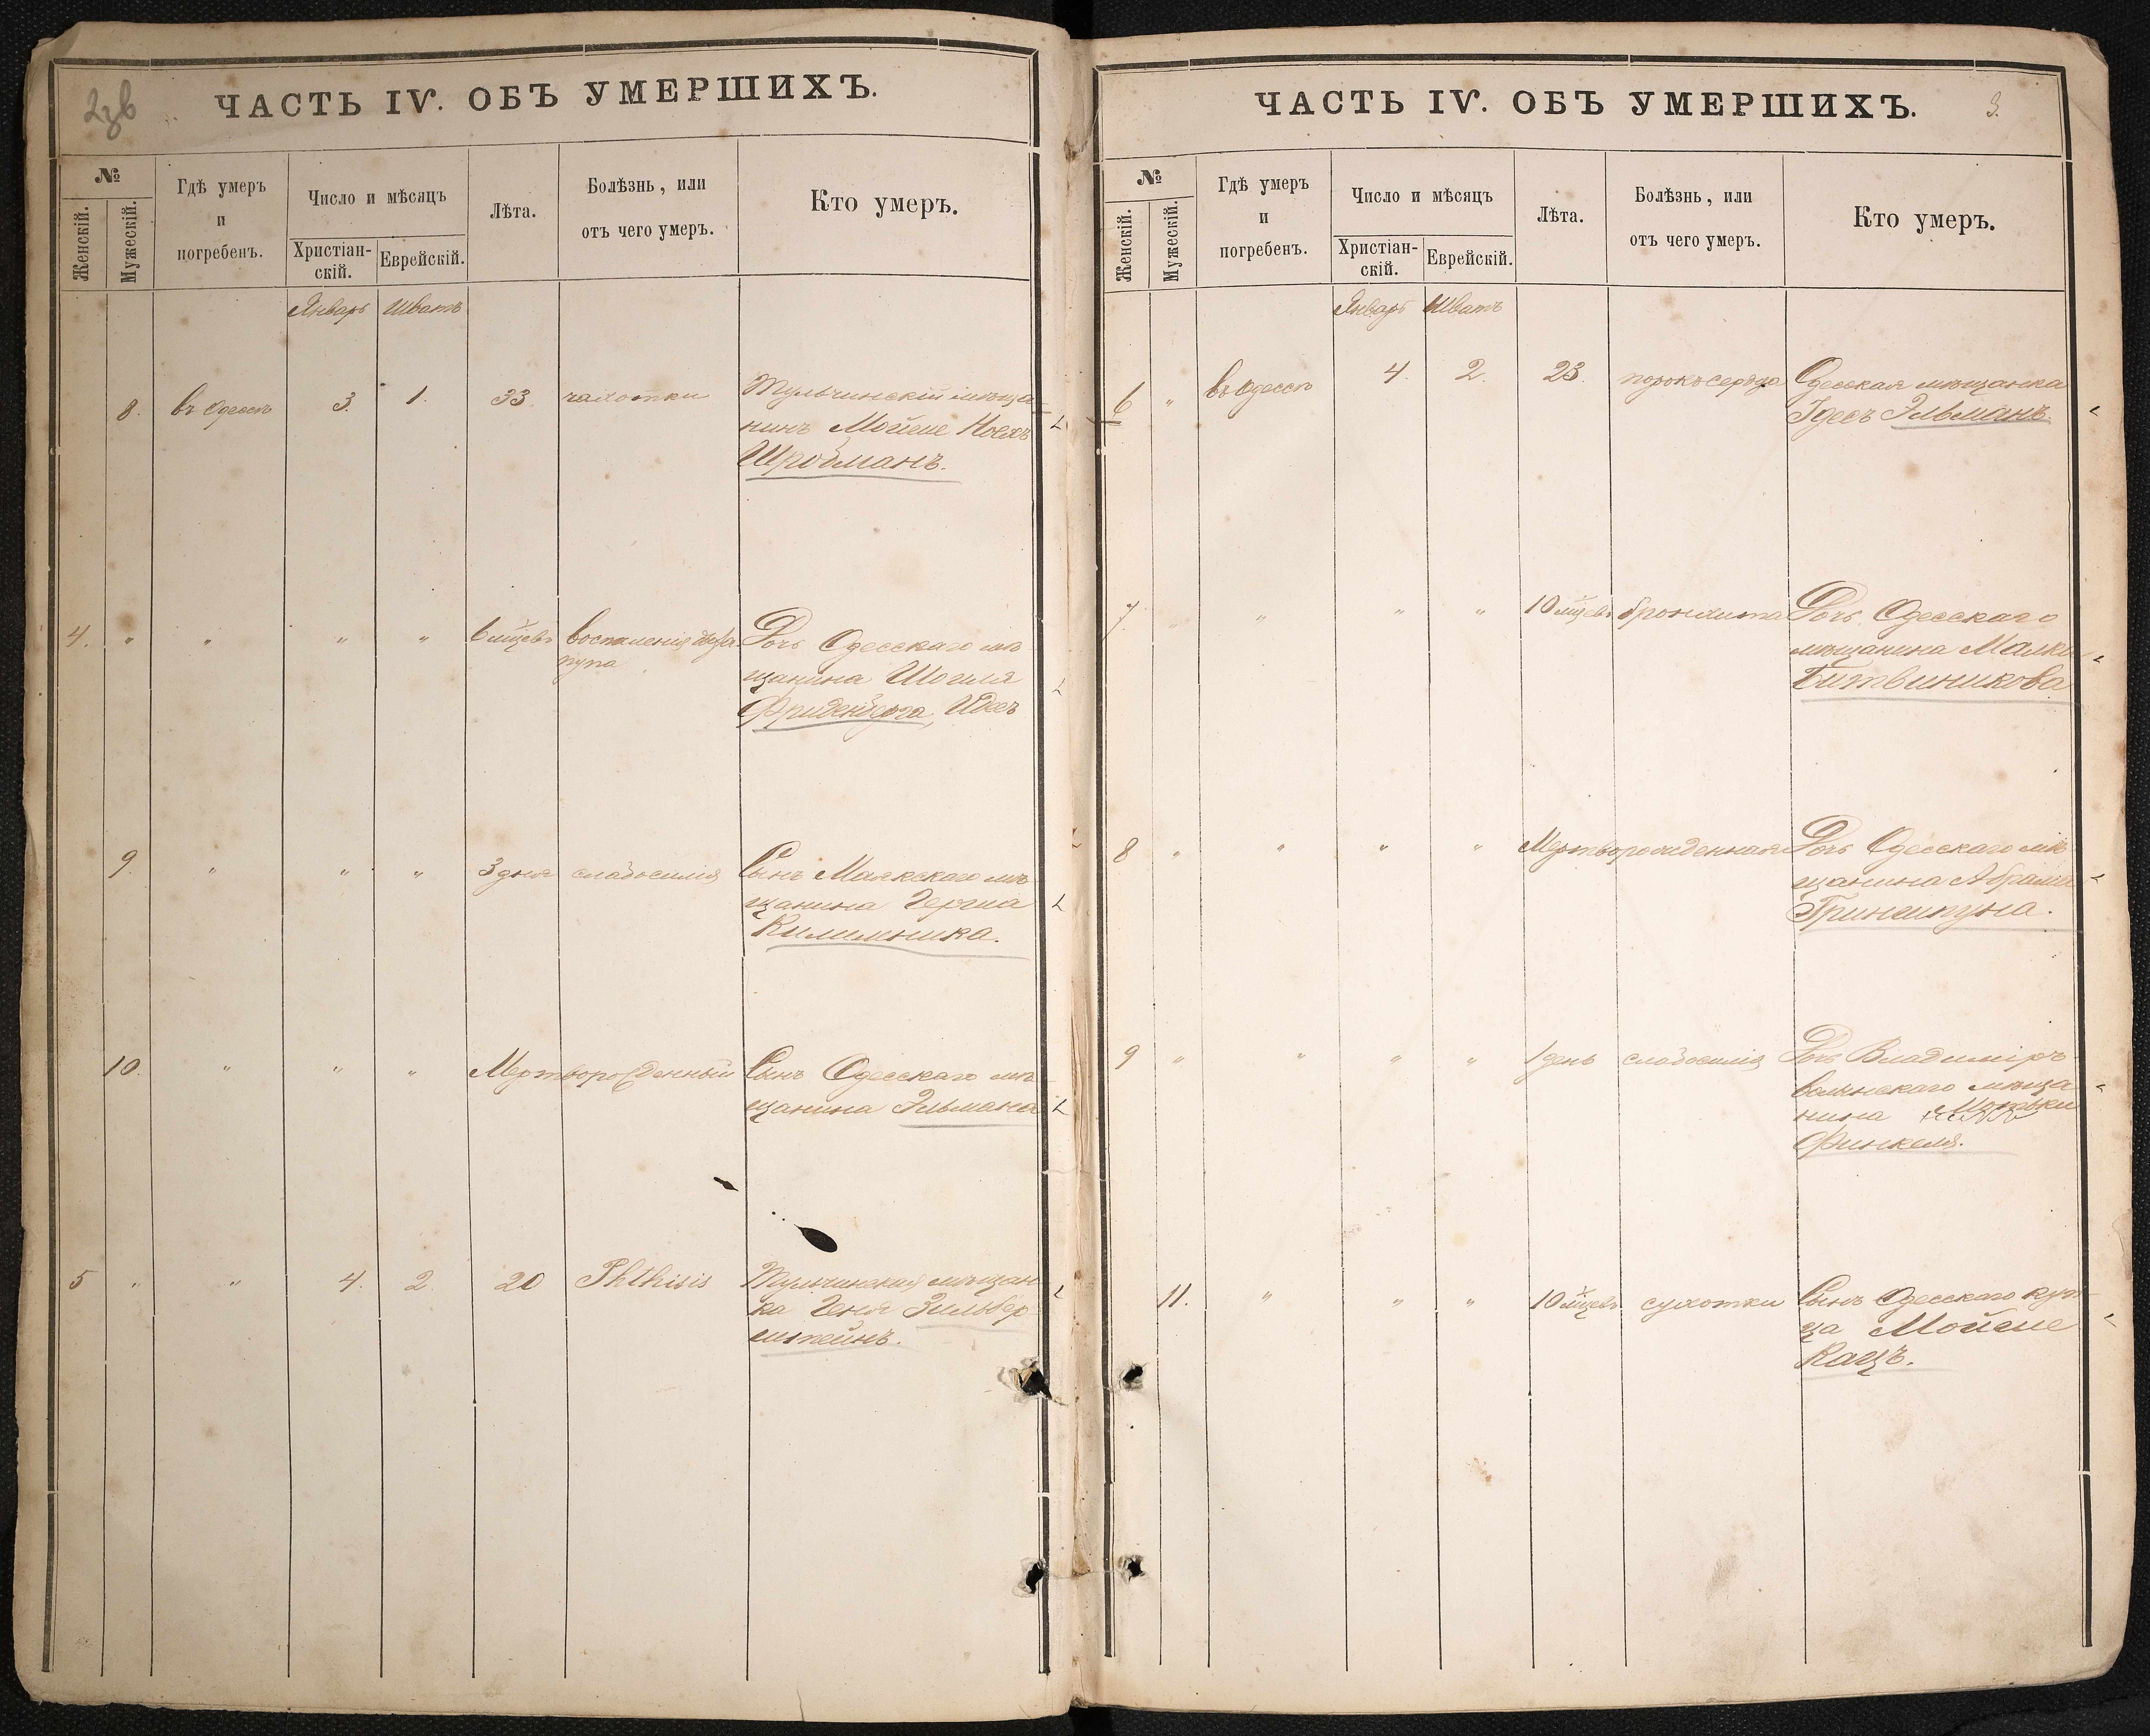 ЧАСТЬ IV. ОБЪ УМЕРШИХЪ.
№
Женскій.
Мужескій.
Гдѣ умеръ
и
погребенъ.
Число и мѣсяцъ
Христіан-
скій.
Еврейскій.
Лѣта.
Болѣзнь, или
отъ чего умеръ.
Кто умеръ.
Январь Шватъ
8. въ Одессѣ 3. 1. 33 чахотки Тульчинскій мѣща
нинъ Мойше Ноехъ
Шройманъ.
4. " " " " 6 мѣцевъ воспаленія
пупа
Дочь Одесскаго мѣ
щанина Шогиля
Фриденберга, Идесъ
9. " " " 3 дня слабосилія Сынъ Маякскаго мѣ
щанина Герша
Килимника.
10. " " " Мертворожденный Сынъ Одесскаго мѣ
щанина Эльмана
5 " " 4. 2. 20 Phthisis Тульчинская мѣщан
ка Геня Зильбер
штейнъ.
ЧАСТЬ IV. ОБЪ УМЕРШИХЪ. 3.
№
Женскій.
Мужескій.
Гдѣ умеръ
и
погребенъ.
Число и мѣсяцъ
Христіан-
скій.
Еврейскій.
Лѣта.
Болѣзнь, или
отъ чего умеръ.
Кто умеръ.
Январь Шватъ
6 " въ Одессѣ 4. 2. 23. порокъ сердца Одесская мѣщанка
Идесъ Эльманъ.
7 " " " 10 мѣцевъ бронхита Дочь Одесскаго
мѣщанина Малка
Битвинникова
8 " " " " Мертворожденная Дочь Одесскаго мѣ
щанина Абрама
Гриншпуна.
9 " " " " 1 день слабосилія Дочь Владиміръ
волынскаго мѣща
нина Мотьки
Финкеля.
11. " " " 10 мѣцевъ сухотки Сынъ Одесскаго куп
ца Мойше
Кацъ.